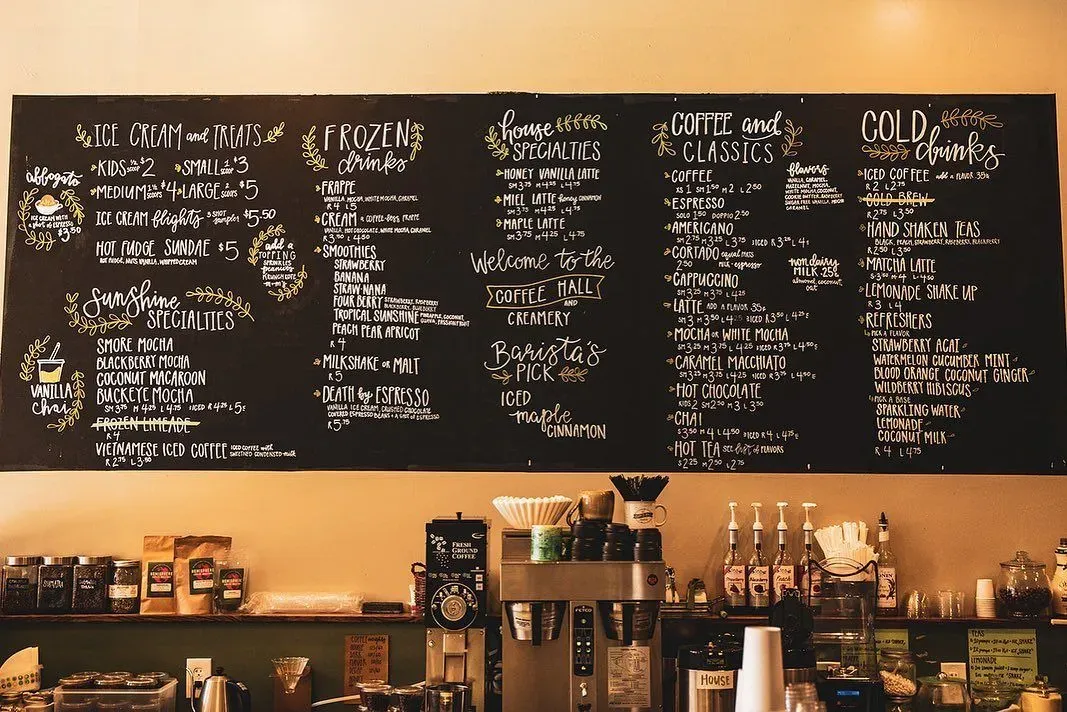 ICE CREAM and TREATS
KIDS 1/2 SCOOPS $2 SMALL 1 SCOOPS $3
MEDIUM 1 1/2 SCOOPS $4 LARGE 2 SCOOPS $5
ICE CREAM flights 3 SHOT sampler $5.50
HOT FUDGE SUNDAE $5
HOT FUDGE, NUTS, VANILLA, WHIPPED CREAM
affogato
ICE CREAM with
a shot of ESPRESSO
$3.50
add a
TOPPING
SPRINKLES
peanuts
m+m's
Sunshine
SPECIALTIES
SMORE MOCHA
BLACKBERRY MOCHA
COCONUT MACAROON
BUCKEYE MOCHA
SM 3.75 M 4.25 L 4.75 ICED R 4.25 L 5
FROZEN LIMEADE
R 4
VIETNAMESE ICED COFFEE ICED COFFEE with SWEETENED CONDENSED milk
R 2.75 L 3.50
VANILLA
chai
FROZEN
drinks
FRAPPE
VANILLA, MOCHA, WHITE MOCHA, CARAMEL
R 4 L 5
CREAM a COFFEE-less FRAPPE
VANILLA, HOT CHOCOLATE, WHITE MOCHA, CARAMEL
R 3.50 L 4.50
SMOOTHIES
STRAWBERRY
BANANA
STRAW-NANA
FOUR BERRY STRAWBERRY, RASPBERRY BLACKBERRY, BLUEBERRY
TROPICAL SUNSHINE PINEAPPLE, COCONUT, GUAVA, PASSIONFRUIT
PEACH PEAR APRICOT
R 4
MILKSHAKE or MALT
R 5
DEATH by ESPRESSO
VANILLA ICE CREAM, CRUSHED CHOCOLATE
COVERED ESPRESSO BEANS + A SHOT of ESPRESSO
R 5.75
house
SPECIALTIES
HONEY VANILLA LATTE
SM 3.75 M 4.25 L 4.75
MIEL LATTE honey cinnamon
SM 3.75 M 4.25 L 4.75
MAPLE LATTE
SM 3.75 M 4.25 L 4.75
Welcome to the
COFFEE HALL
AND
CREAMERY
Barista's
PICK
ICED
maple
CINNAMON
COFFEE and
CLASSICS
COFFEE
XS 1 SM 1.50 M 2 L 2.50
ESPRESSO
SOLO 1.50 DOPPIO 2.50
AMERICANO
SM 2.75 M 3.25 L 3.75 ICED R 3.25 L 4
CORTADO equal parts
2.50 milk + espresso
CAPPUCCINO
SM 3.25 M 3.75 L 4.25
LATTE ADD A FLAVOR 35¢
SM 3 M 3.50 L 4.25 ICED R 3.50 L 4.25
MOCHA or WHITE MOCHA
SM 3.25 M 3.75 L 4.25 ICED R 3.75 L 4.50
CARAMEL MACCHIATO
SM 3.25 M 3.75 L 4.25 ICED R 3.75 L 4.50
HOT CHOCOLATE
KIDS 2 SM 2.50 M 3 L 3.50
CHAI
S 3.50 M 4 L 4.50 ICED R 4 L 4.75
HOT TEA see list of FLAVORS
S 2.25 M 2.50 L 2.75
flavors
VANILLA, CARAMEL,
HAZELNUT, MOCHA,
WHITE MOCHA, COCONUT,
SUGAR FREE VANILLA, MOCHA
CARAMEL
non dairy
MILK 25¢
almond, coconut,
oat
COLD
drinks
ICED COFFEE add a FLAVOR 35¢
R 2 L 2.75
COLD BREW
R 2.75 L 3.50
HAND SHAKEN TEAS
BLACK, PEACH, STRAWBERRY, RASPBERRY, BLACKBERRY
R 2.50 L 3.50
MATCHA LATTE
S 3.50 M 4 L 4.50
LEMONADE SHAKE UP
R 3 L 4
REFRESHERS
PICK A FLAVOR
STRAWBERRY ACAI
WATERMELON CUCUMBER MINT
BLOOD ORANGE COCONUT GINGER
WILDBERRY HIBISCUS
PICK A BASE
SPARKLING WATER
LEMONADE
COCONUT MILK
R 4 L 4.75
FRESH
GROUND
COFFEE
FETCO
HOUSE
COFFEE
TEAS
LEMONADE